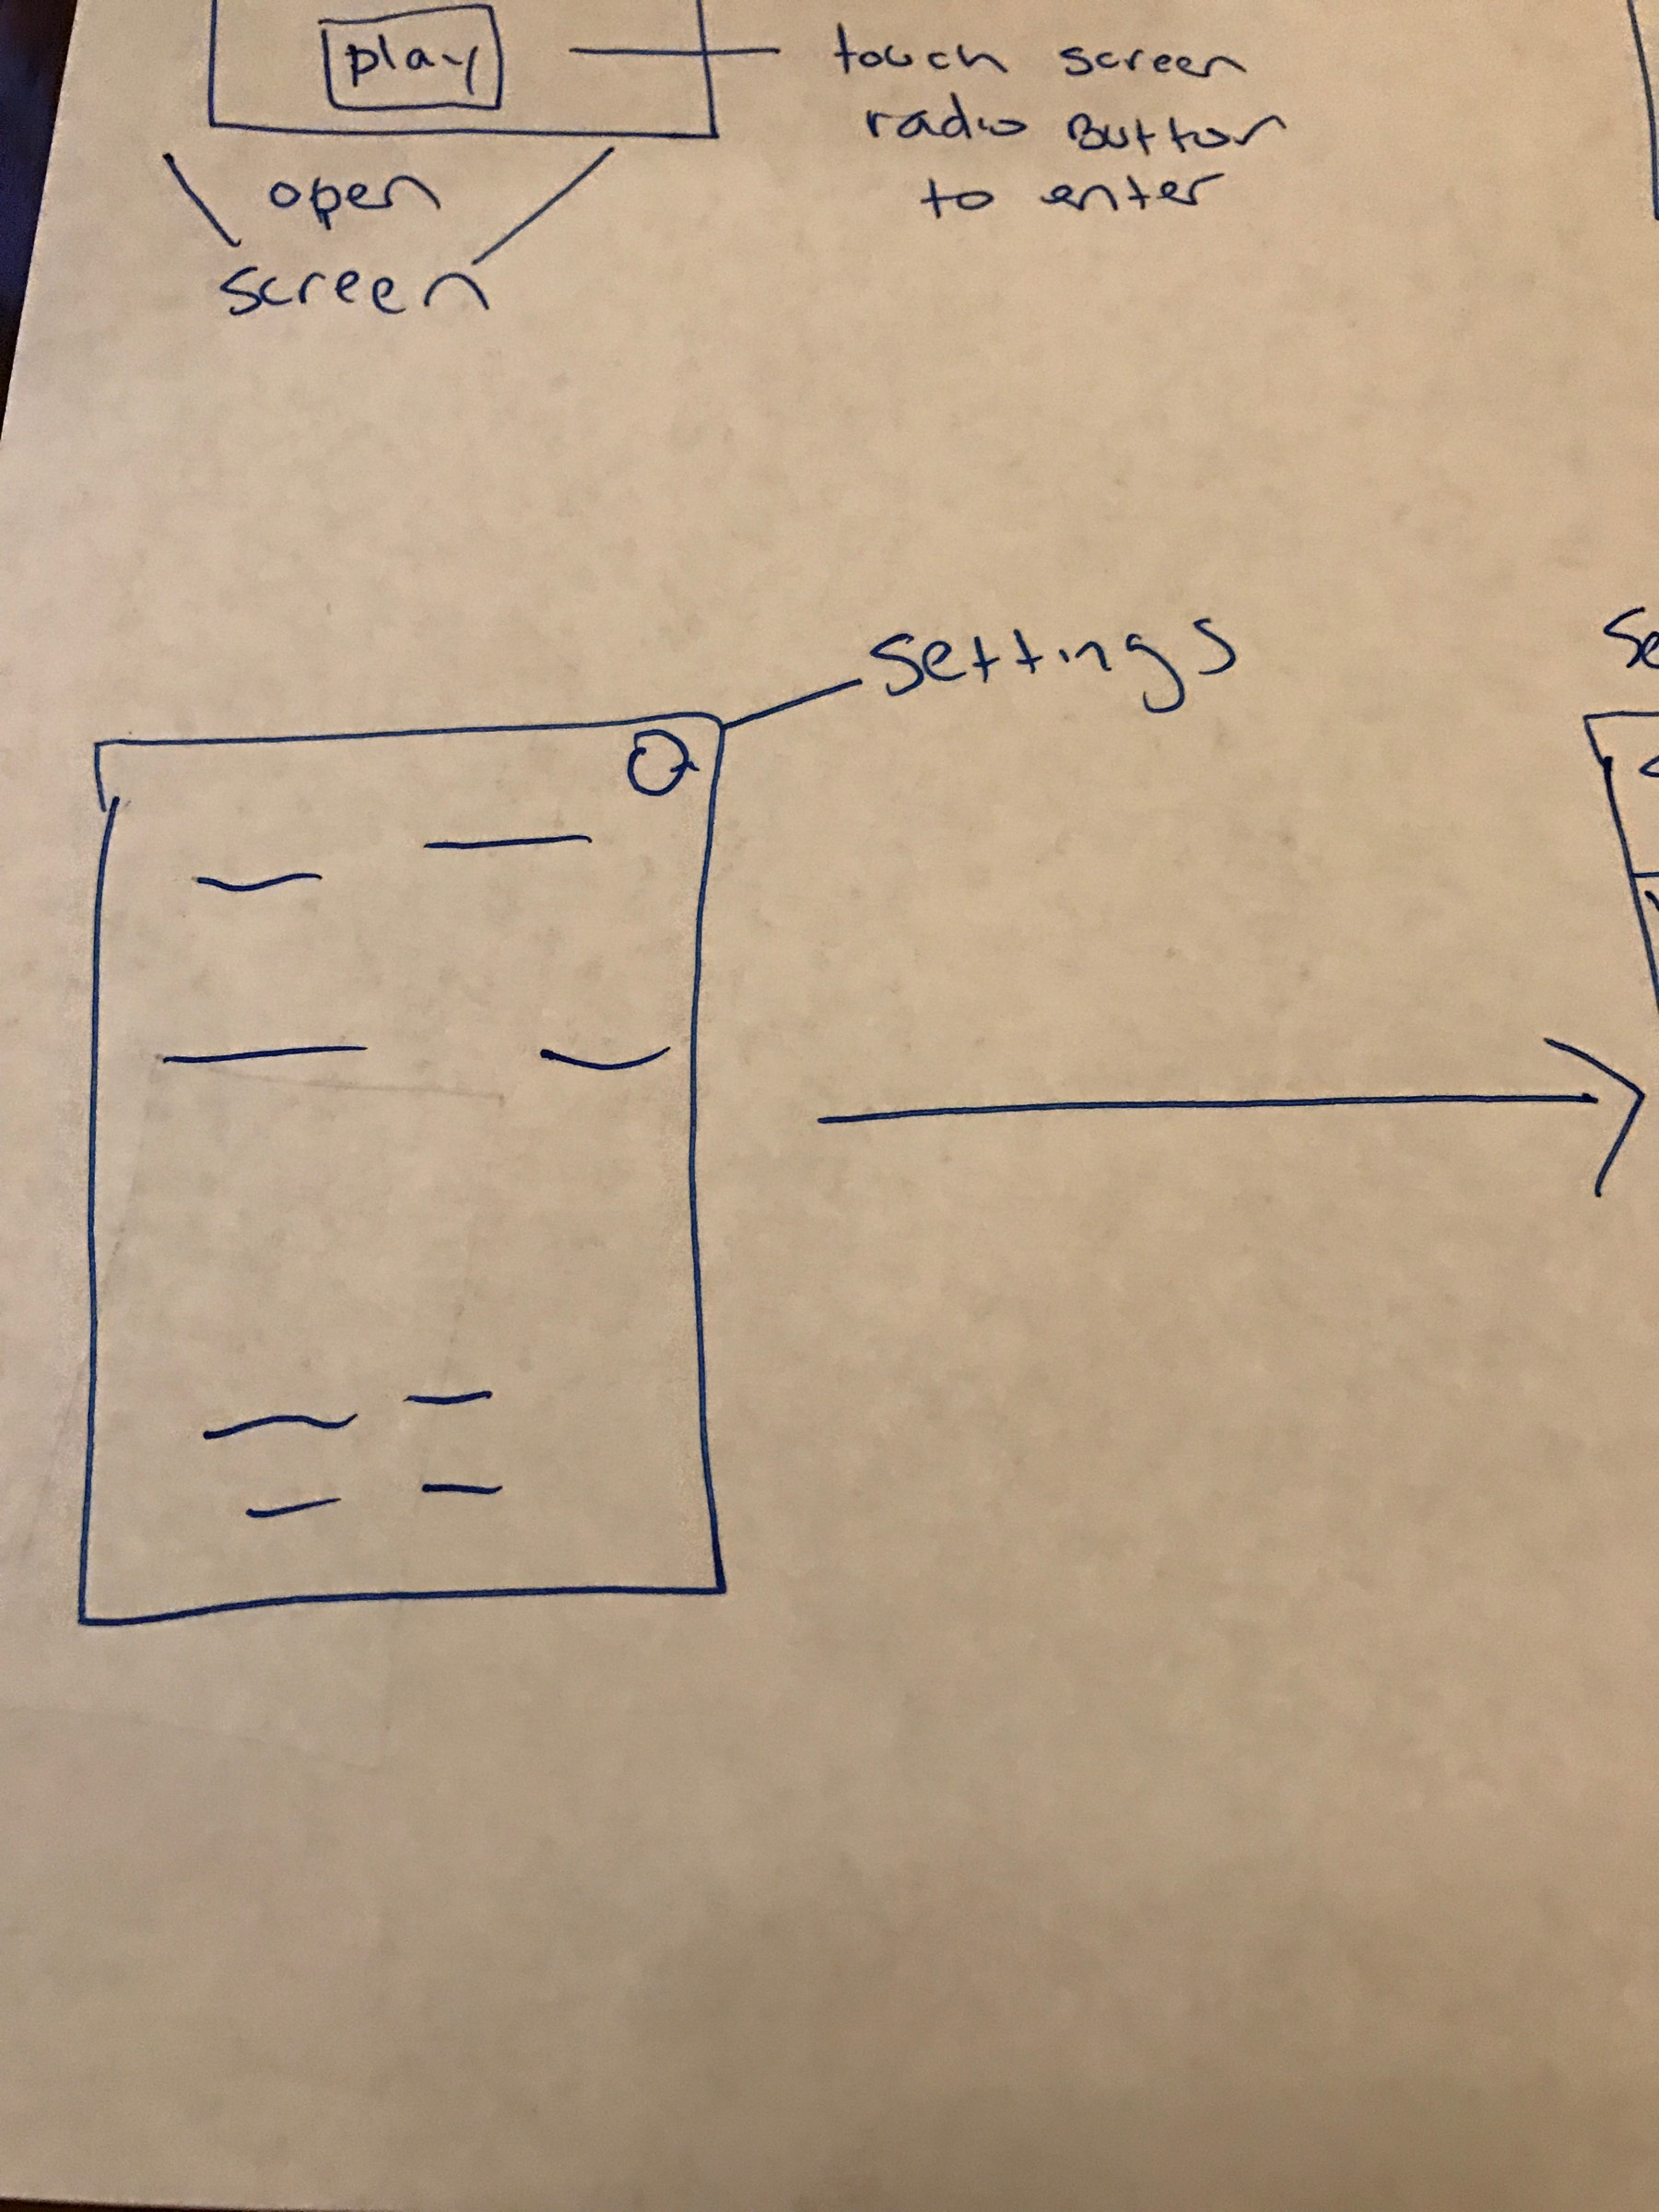 play
touch screen
radio Button
to enter
open
screen
settings
Se